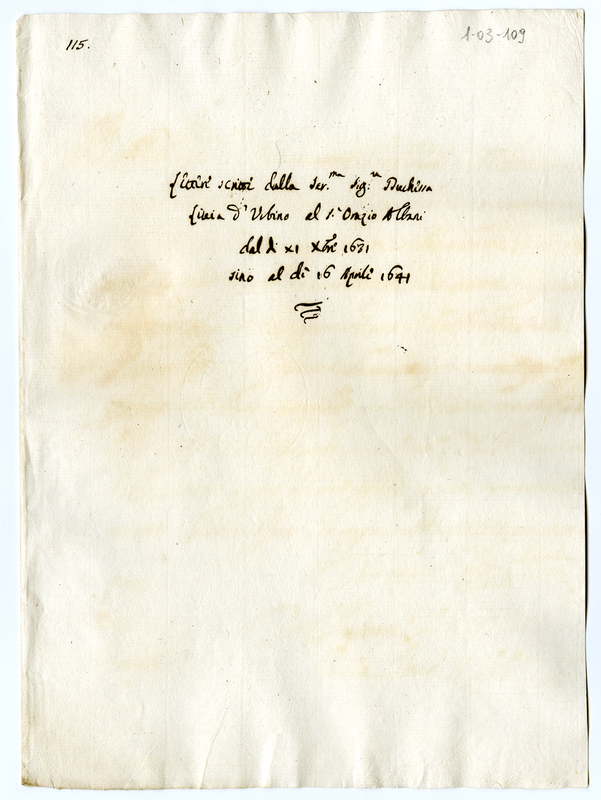 115.
1-03-109
Lettere scritte dalla Ser.ma Sig.ra Duchessa
Livia d'Urbino al S.r Orazio Albani
dal dì XI Xbre 1631
sino al dì 16 Aprile 1641